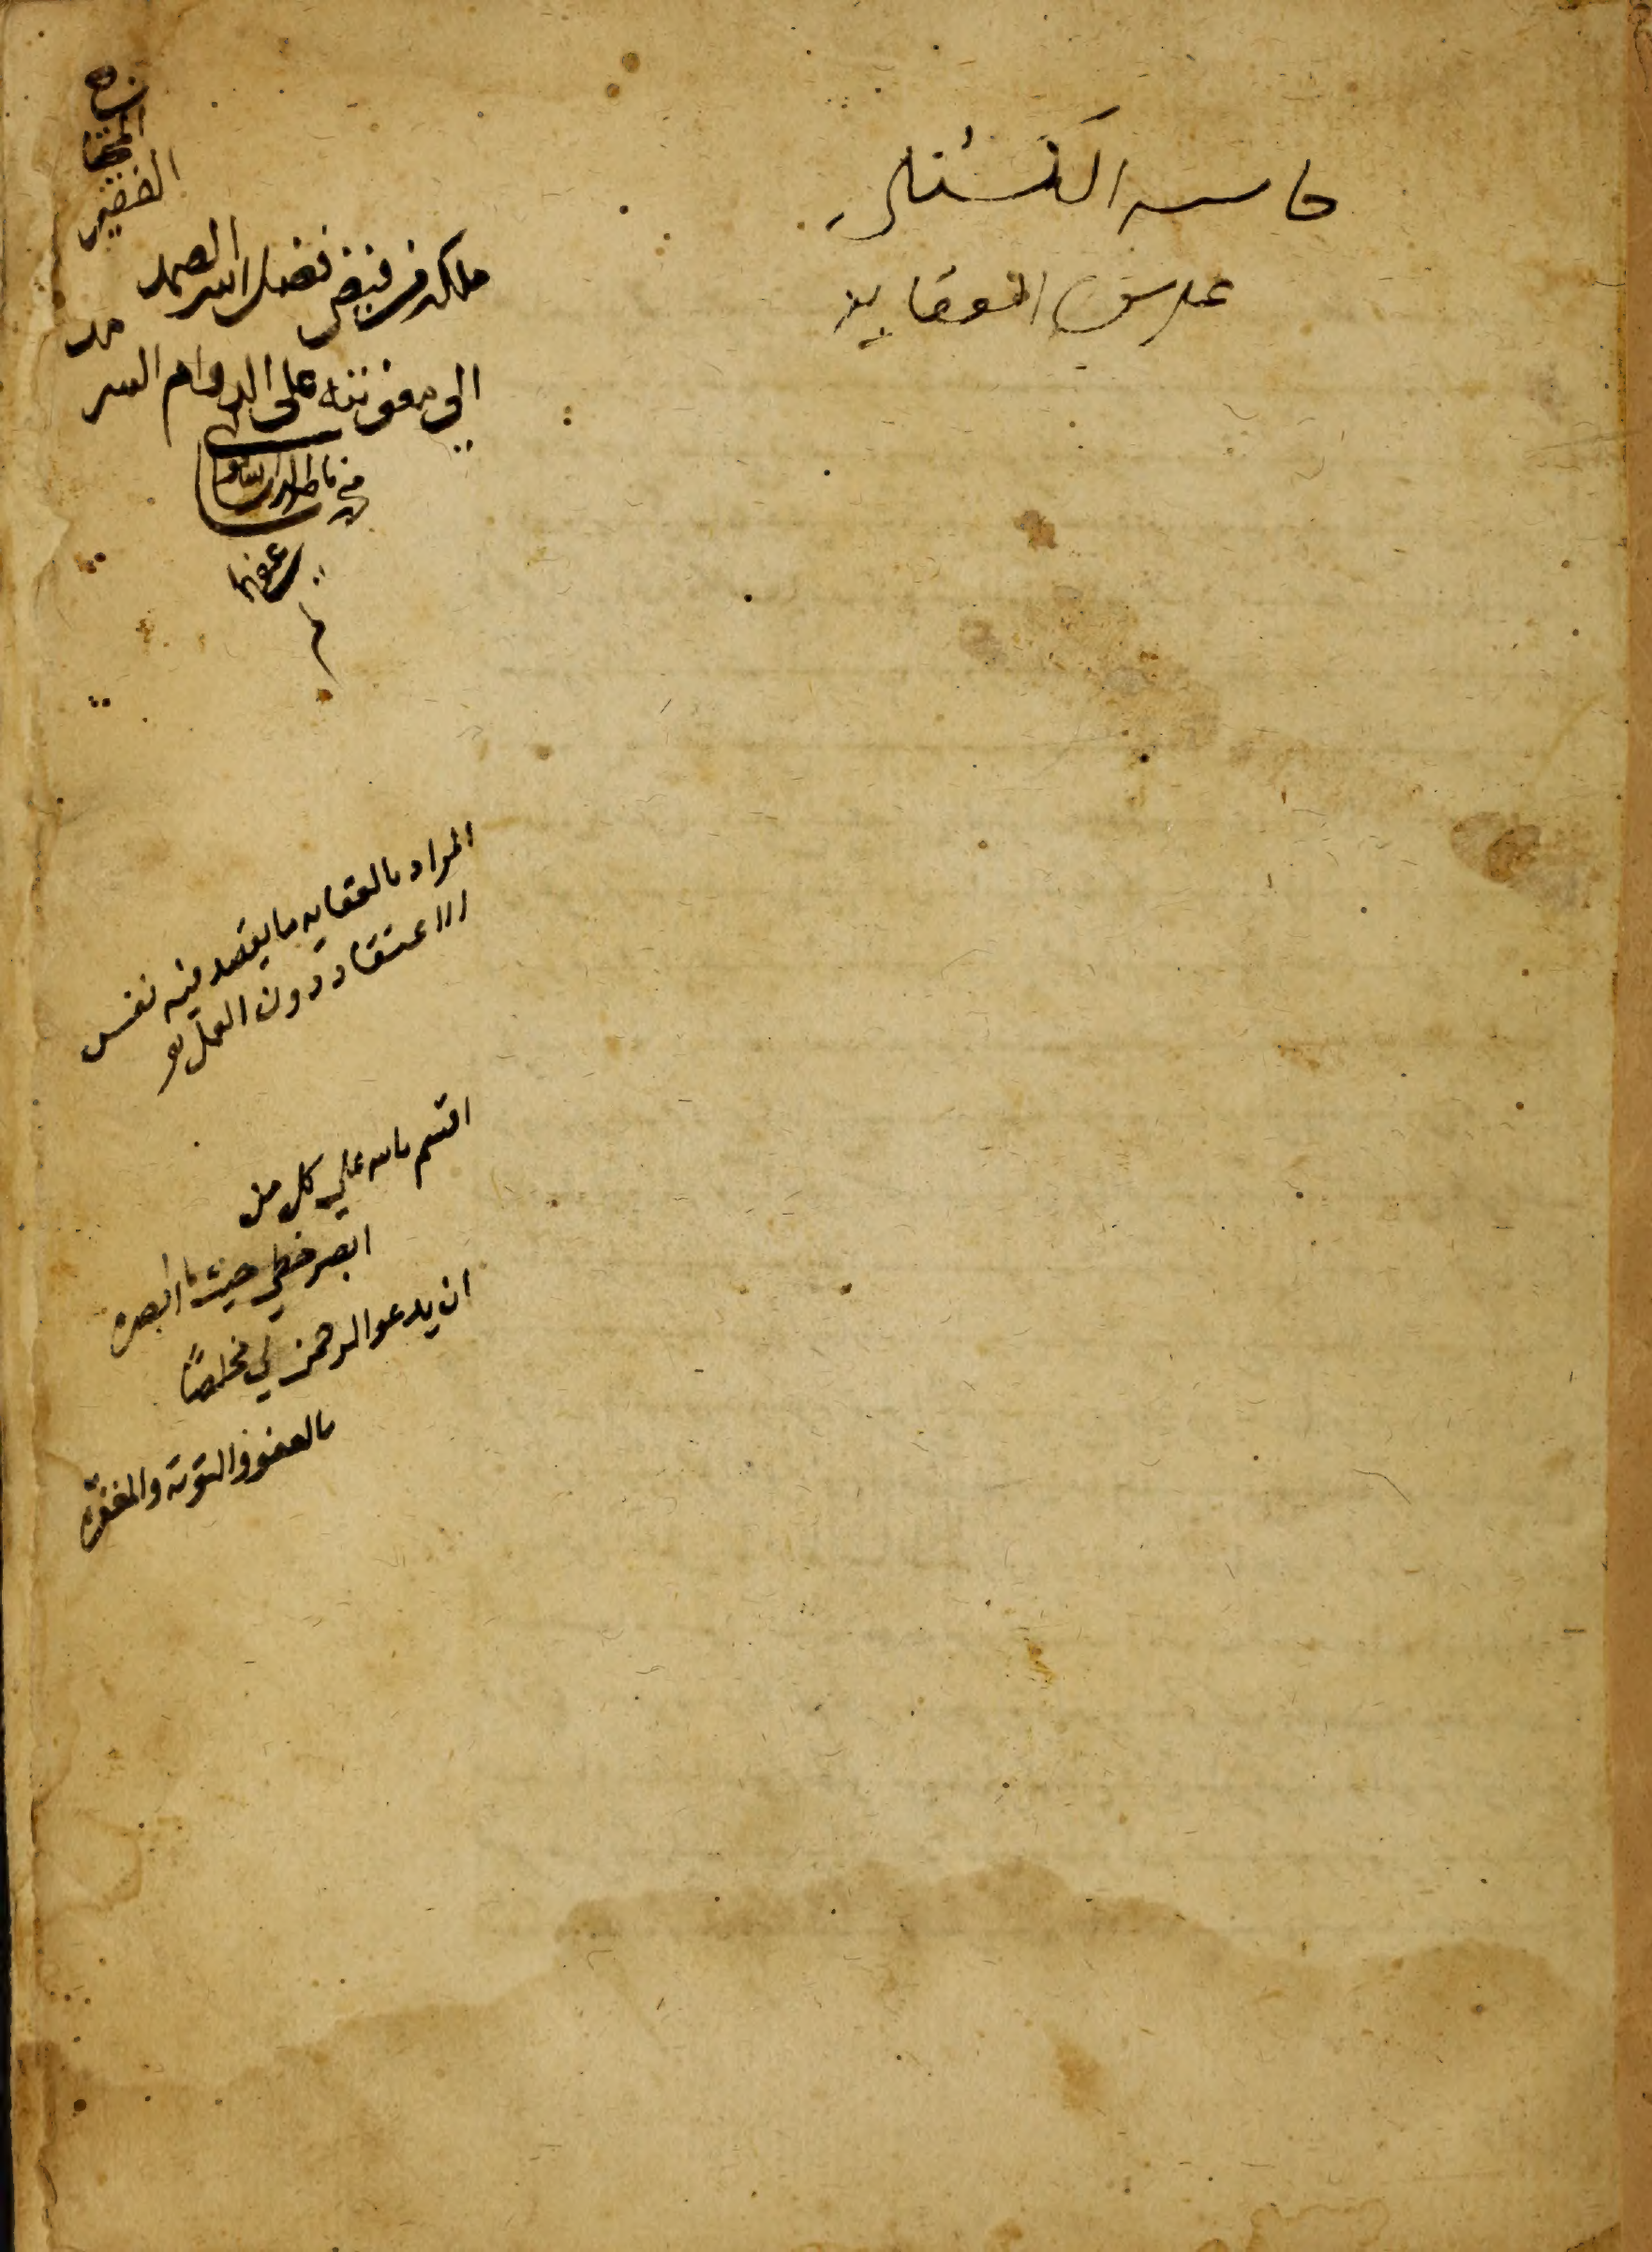 حاسه الكستلى
على شرح العقايد
ملكه من فيض فضل الله الصمد
الفقير
المحتاج
الى معونته على الدوام السرمد
عفى عنهما
م
المراد بالعقايد ما يقصد فيه نفس
الاعتقاد دون العمل
اقسم بالله على كل من
ابصر خطي حيث ما ابصره
ان يدعو الرحمن لي مخلصًا
بالعفو والتوبة والمغفره